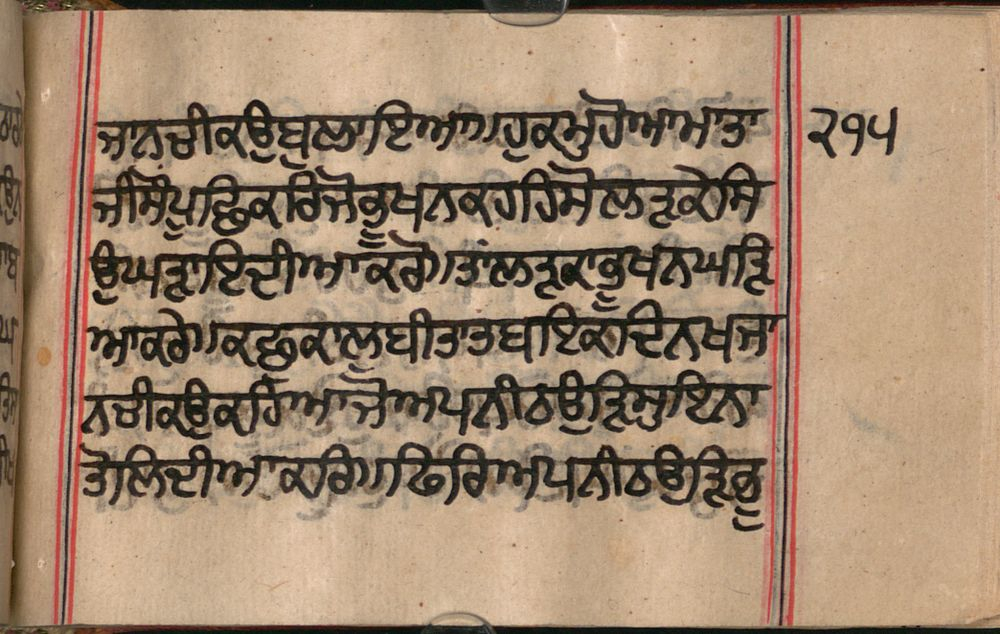 ਜਾਨਚੀਕਉਬੁਲਾਇਆ॥ਹੁਕਮੁਹੋਆਮਾਤਾ ੨੧੫
ਜੀਸੋਂਪੂਛਿਕਰਿਜੋਭੂਖਨਕਹਹਿਸੋਲੜਕੇਸਿ
ਉਘੜਾਇਦੀਆਕਰੋ॥ਤਾਂਲੜਕਾਭੂਖਨਘੜਿ
ਆਕਰੇ॥ਕਛੁਕਾਲੁਬੀਤਾਤਬਇਕਦਿਨਖਜਾ
ਨਚੀਕਉਕਹਿਆਜੋਅਪਨੀਠਉੜਿਸੁਇਨਾ
ਤੋਲਿਦੀਆਕਰਿ॥ਫਿਰਿਅਪਨੀਠਉੜਿਭੂ